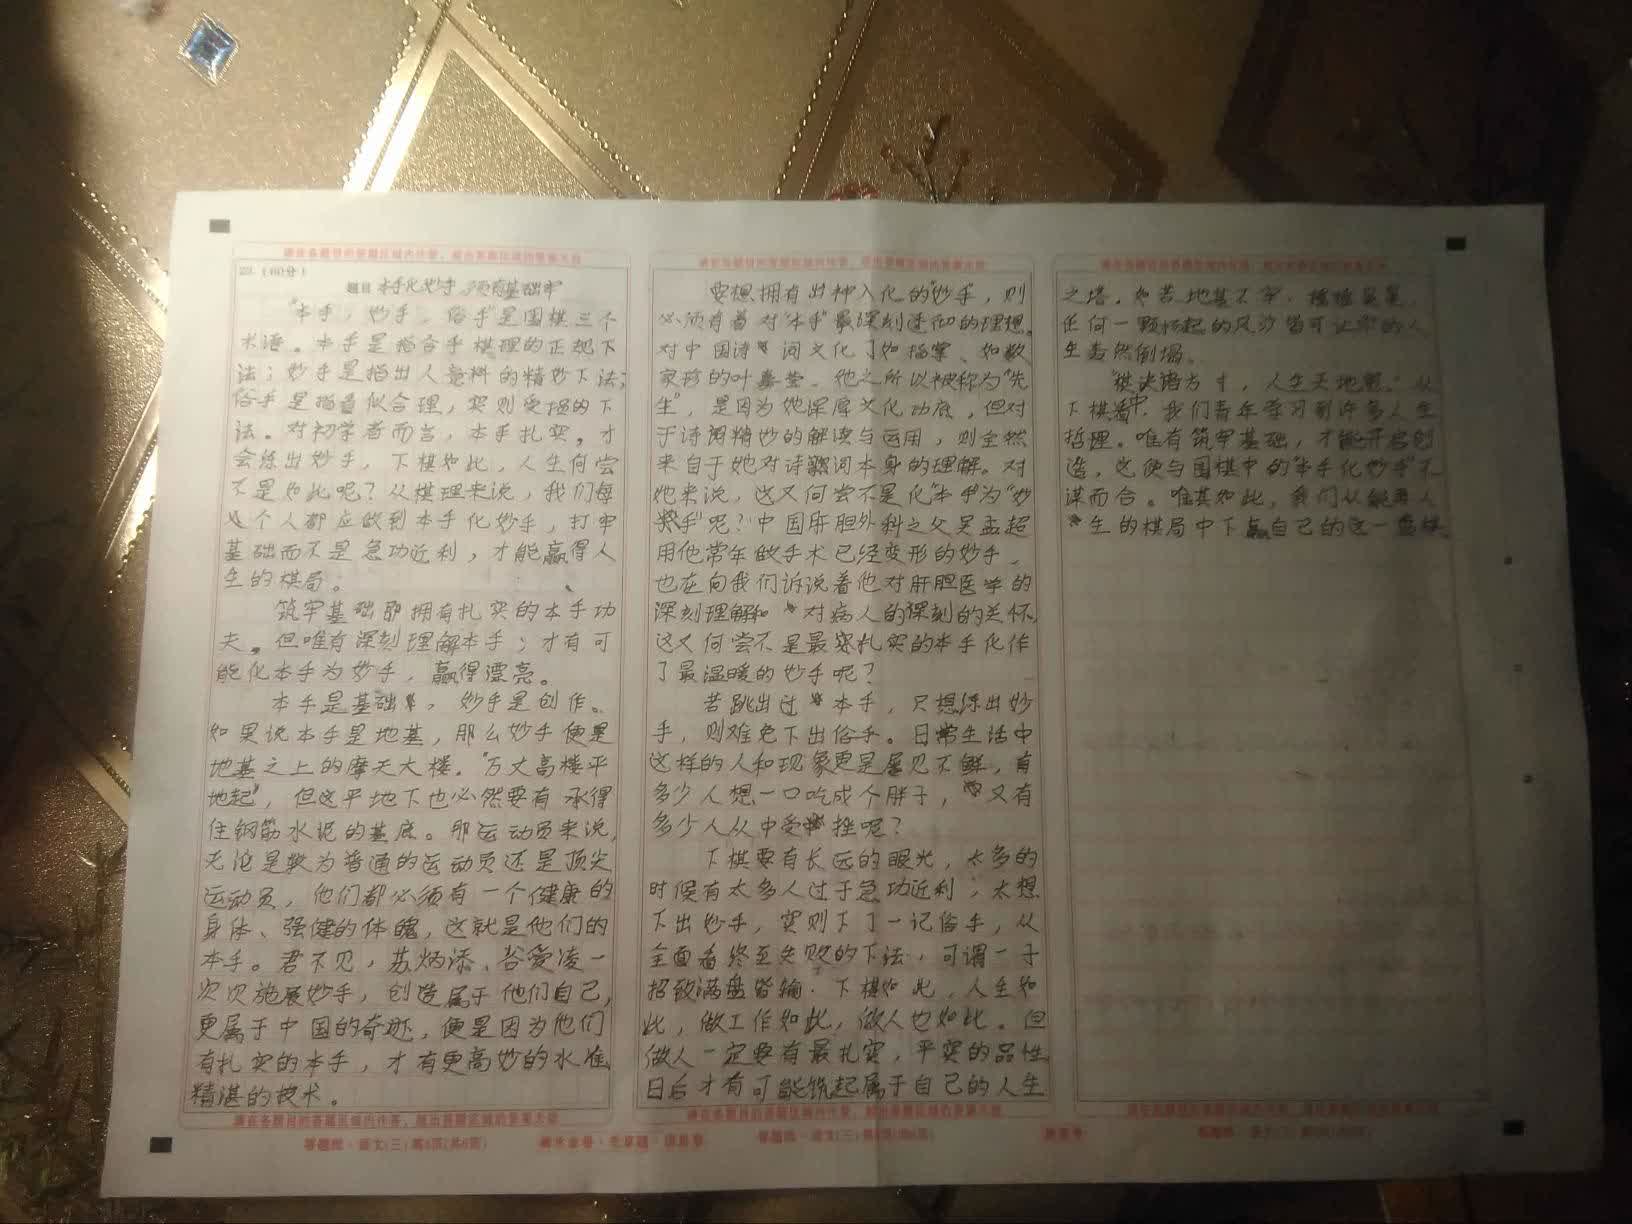 23.（60分）
题目 本手化妙手 须有基础牢
"本手，妙手，俗手"是围棋三个
术语。本手是指合乎棋理的正规下
法；妙手是指出人意料的精妙下法；
俗手是指看似合理，实则受损的下
法。对初学者而言，本手扎实，才
会练出妙手，下棋如此，人生何尝
不是如此呢？从棋理来说，我们每
个人都应做到本手化妙手，打牢
基础而不是急功近利，才能赢得人
生的棋局。
筑牢基础即拥有扎实的本手功
夫。但唯有深刻理解本手；才有可
能化本手为妙手，赢得漂亮。
本手是基础，妙手是创作。
如果说本手是地基，那么妙手便是
地基之上的摩天大楼。"万丈高楼平
地起"，但这平地下也必然要有承得
住钢筋水泥的基底。那运动员来说，
无论是较为普通的运动员还是顶尖
运动员，他们都必须有一个健康的
身体、强健的体魄，这就是他们的
本手。君不见，苏炳添、谷爱凌一
次次施展妙手，创造属于他们自己，
更属于中国的奇迹，便是因为他们
有扎实的本手，才有更高妙的水准
精湛的技术。
要想拥有出神入化的"妙手，则
必须有着对"本手"最深刻透彻的理想。
对中国诗词文化了如指掌、如数
家珍的叶嘉莹。他之所以被称为"先
生"，是因为她深厚文化功底，但对
于诗词精妙的解读与运用，则全然
来自于她对诗歌词本身的理解。对
她来说，这又何尝不是化"本手"为"妙
手"呢？中国肝胆外科之父吴孟超
用他常年做手术已经变形的妙手，
也在向我们诉说着他对肝胆医学的
深刻理解和对病人的深刻的关怀，
这又何尝不是最扎实的本手化作
了最温暖的妙手呢？
若跳出过本手，只想练出妙
手，则难免下出俗手。日常生活中
这样的人和现象更是屡见不鲜，有
多少人想一口吃成个胖子，又有
多少人从中受挫呢？
下棋要有长远的眼光，太多的
时候有太多人过于急功近利，太想
下出妙手，实则下了一记俗手，从
全面看终至失败的下法，可谓一子
招致满盘皆输。下棋如此，人生如
此，做工作如此，做人也如此。但
做人一定要有最扎实，平实的品性
日后才有可能筑起属于自己的人生
之塔，如若地基不牢，摇摇晃晃，
任何一颗扬起的风沙皆可让你的人
生轰然倒塌。
"棋诀诸方寸，人生天地宽。"从
下棋中，我们青年学习到许多人生
哲理。唯有筑牢基础，才能开启创
造，这便与围棋中的"本手化妙手"不
谋而合。唯其如此，我们从能再人
生的棋局中下赢自己的这一盘棋。
请在各题目的答题区域内作答，超出答题区域的答案无效
答题纸·语文(三) 第5页(共6页)